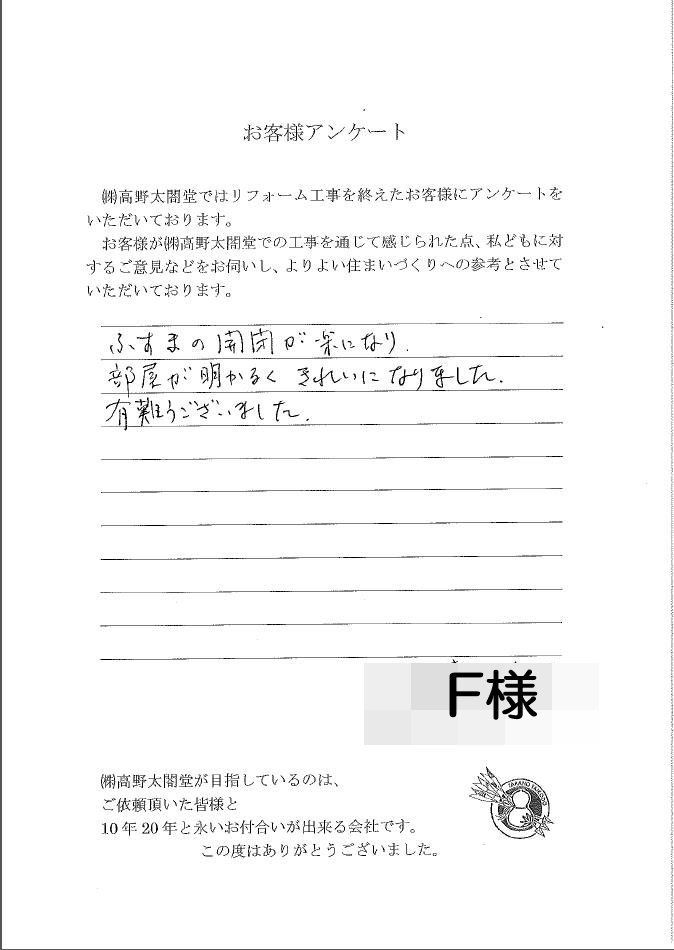 お客様アンケート
㈱高野太閤堂ではリフォーム工事を終えたお客様にアンケートを
いただいております。
お客様が㈱高野太閤堂での工事を通じて感じられた点、私どもに対
するご意見などをお伺いし、よりよい住まいづくりへの参考とさせて
いただいております。
ふすまの開閉が楽になり.
部屋が明かるく きれいになりました.
有難うございました.
F様
㈱高野太閤堂が目指しているのは、
ご依頼頂いた皆様と
10年20年と永いお付合いが出来る会社です。
この度はありがとうございました。